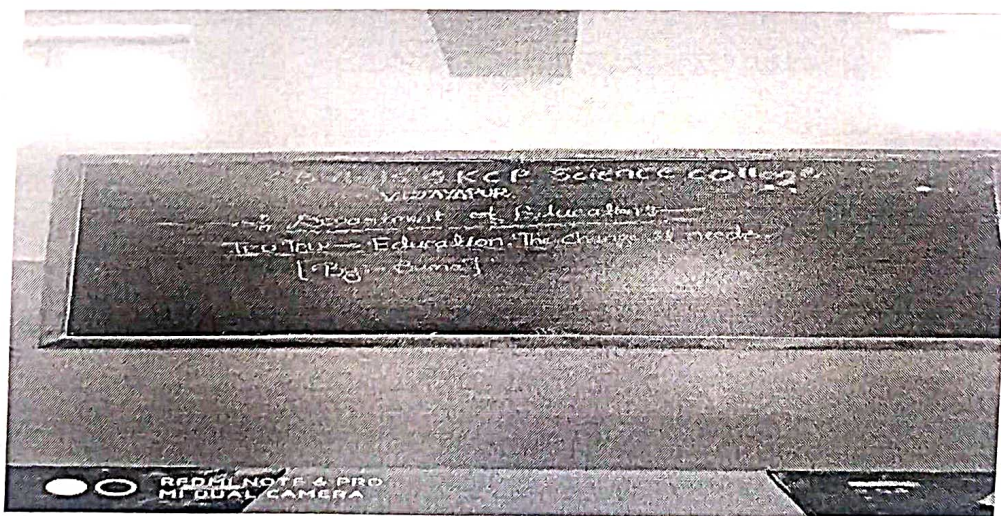 SKCP Science college
VIJAYAPUR.
Department of Education
Education: The change it needs
[By - Suma]
REDMI NOTE 6 PRO
MI DUAL CAMERA